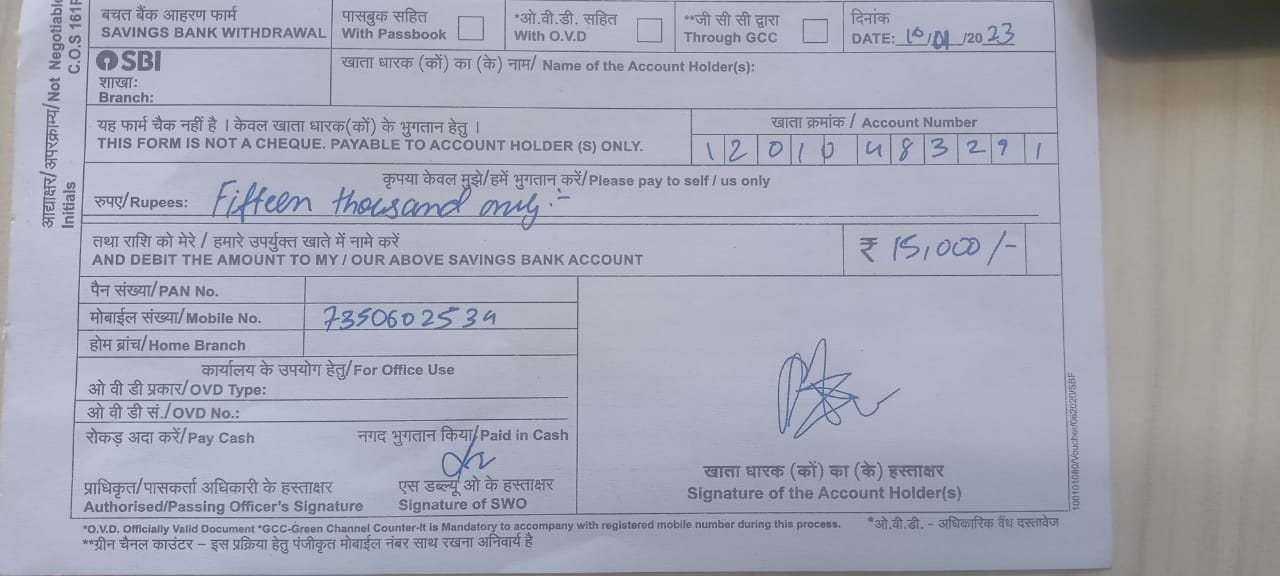 आद्याक्षर/अपरक्राम्य/Not Negotiable
Initials C.O.S 161F
बचत बैंक आहरण फार्म
SAVINGS BANK WITHDRAWAL
पासबुक सहित
With Passbook
*ओ.वी.डी. सहित
With O.V.D
**जी सी सी द्वारा
Through GCC
दिनांक
DATE: 10/01/2023
SBI
शाखाः
Branch:
खाता धारक (कों) का (के) नाम/ Name of the Account Holder(s):
यह फार्म चैक नहीं है । केवल खाता धारक(कों) के भुगतान हेतु ।
THIS FORM IS NOT A CHEQUE. PAYABLE TO ACCOUNT HOLDER (S) ONLY.
खाता क्रमांक / Account Number
1 2 0 1 0 4 8 3 2 9 1
कृपया केवल मुझे/हमें भुगतान करें/Please pay to self / us only
रुपए/Rupees: Fifteen thousand only.-
तथा राशि को मेरे / हमारे उपर्युक्त खाते में नामे करें
AND DEBIT THE AMOUNT TO MY / OUR ABOVE SAVINGS BANK ACCOUNT
₹ 15,000/-
पैन संख्या/PAN No.
मोबाईल संख्या/Mobile No. 7350602534
होम ब्रांच/Home Branch
कार्यालय के उपयोग हेतु/For Office Use
ओ वी डी प्रकार/OVD Type:
ओ वी डी सं./OVD No.:
रोकड़ अदा करें/Pay Cash
नगद भुगतान किया/Paid in Cash
प्राधिकृत/पासकर्ता अधिकारी के हस्ताक्षर
Authorised/Passing Officer's Signature
एस डब्ल्यू ओ के हस्ताक्षर
Signature of SWO
खाता धारक (कों) का (के) हस्ताक्षर
Signature of the Account Holder(s)
100101080/Voucher/062020/SBF
*O.V.D. Officially Valid Document *GCC-Green Channel Counter-It is Mandatory to accompany with registered mobile number during this process. *ओ.वी.डी. - अधिकारिक वैध दस्तावेज
**ग्रीन चैनल काउंटर – इस प्रक्रिया हेतु पंजीकृत मोबाईल नंबर साथ रखना अनिवार्य है